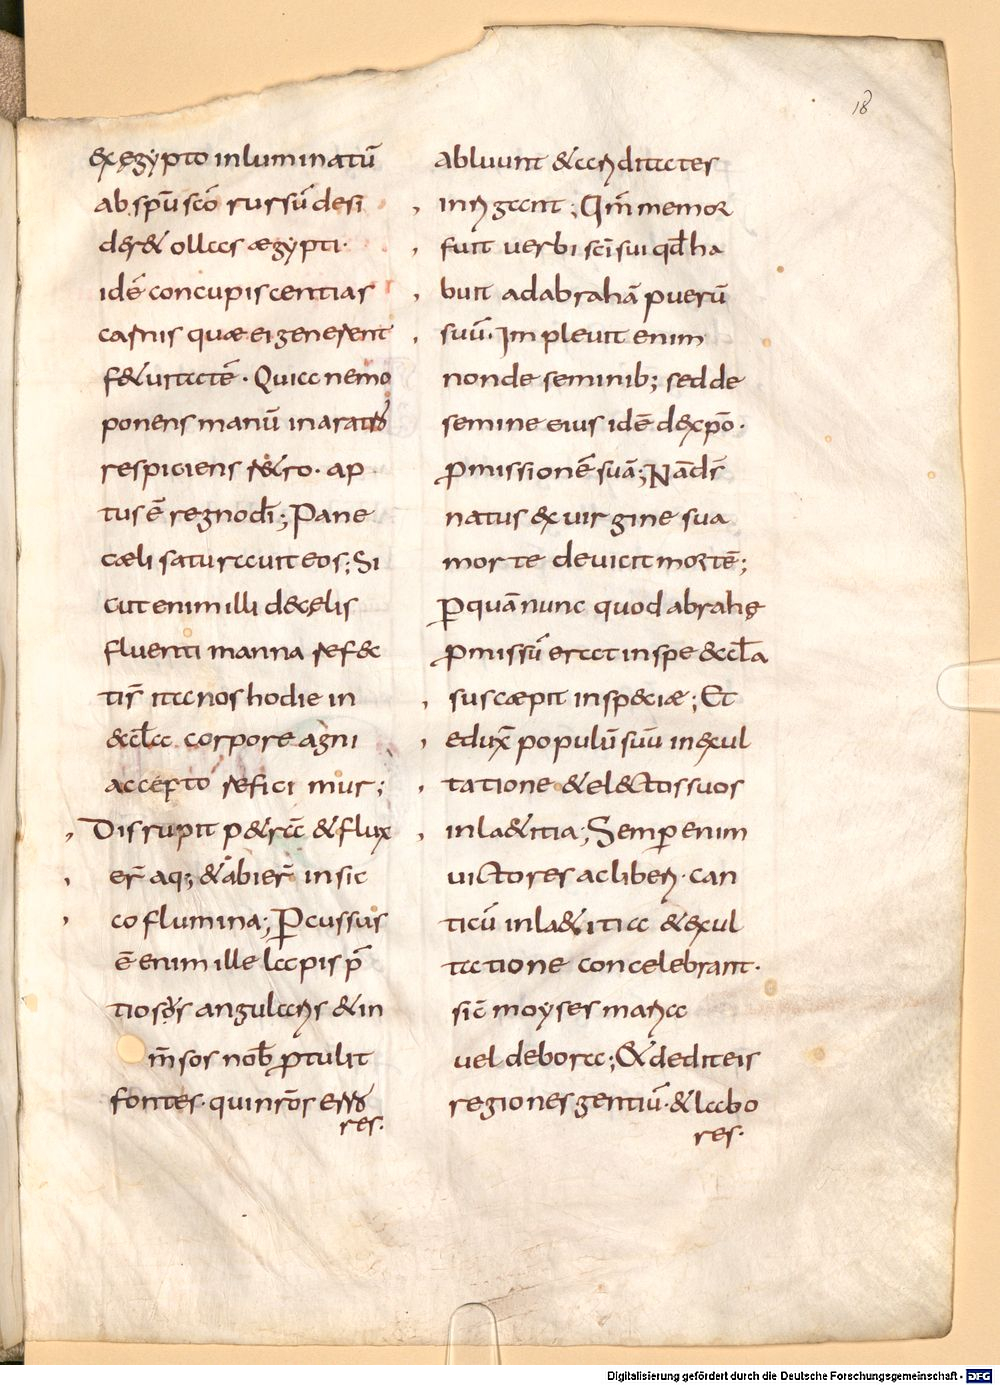 18
exęgypto inluminatū
ab spū scō rursū desi
deret ollas ægypti·
idē concupiscentias
carnis quæ ei generent
fetiditatē· Qui ac nemo
ponens manū in aratro
respiciens retro· ap
tus ē regno dī; Pane
cæli saturavit eos; Si
cut enim illi de cęlis
fluenti manna refec
ti sr̄ ita nos hodie in
eccl̄a corpore agni
accepto reficimur;
Disrupit petrā & flux
er̄ aq; & abier̄ in sic
co flumina; Percussus
ē enim ille lapis p̄
tiosus angularis & in
m̄sos nob̄ protulit
fontes· qui nr̄os erro
res·
abluunt & ardītates
inrigant; Qm̄ memor
fuit verbi sc̄i sui qd̄ ha
buit ad abrahā puerū
suū· Implevit enim
non de seminib; sed de
semine eius idē de xpō·
promissionē suā; Nā dr̄
natus ex virgine sua
morte devicit mortē;
Per quā nunc quod abrahę
promissū erat in spe eccl̄a
suscæpit in speciæ; Et
edux̄ populū suū in exul
tatione & electos suos
in lætitia; Semper enim
victores ac liberi· can
ticū in lætitia & exul
tatione concelebrant·
sic moyses maria
vel debora; Et dedit eis
regiones gentiū· & labo
res·
Digitalisierung gefördert durch die Deutsche Forschungsgemeinschaft - DFG